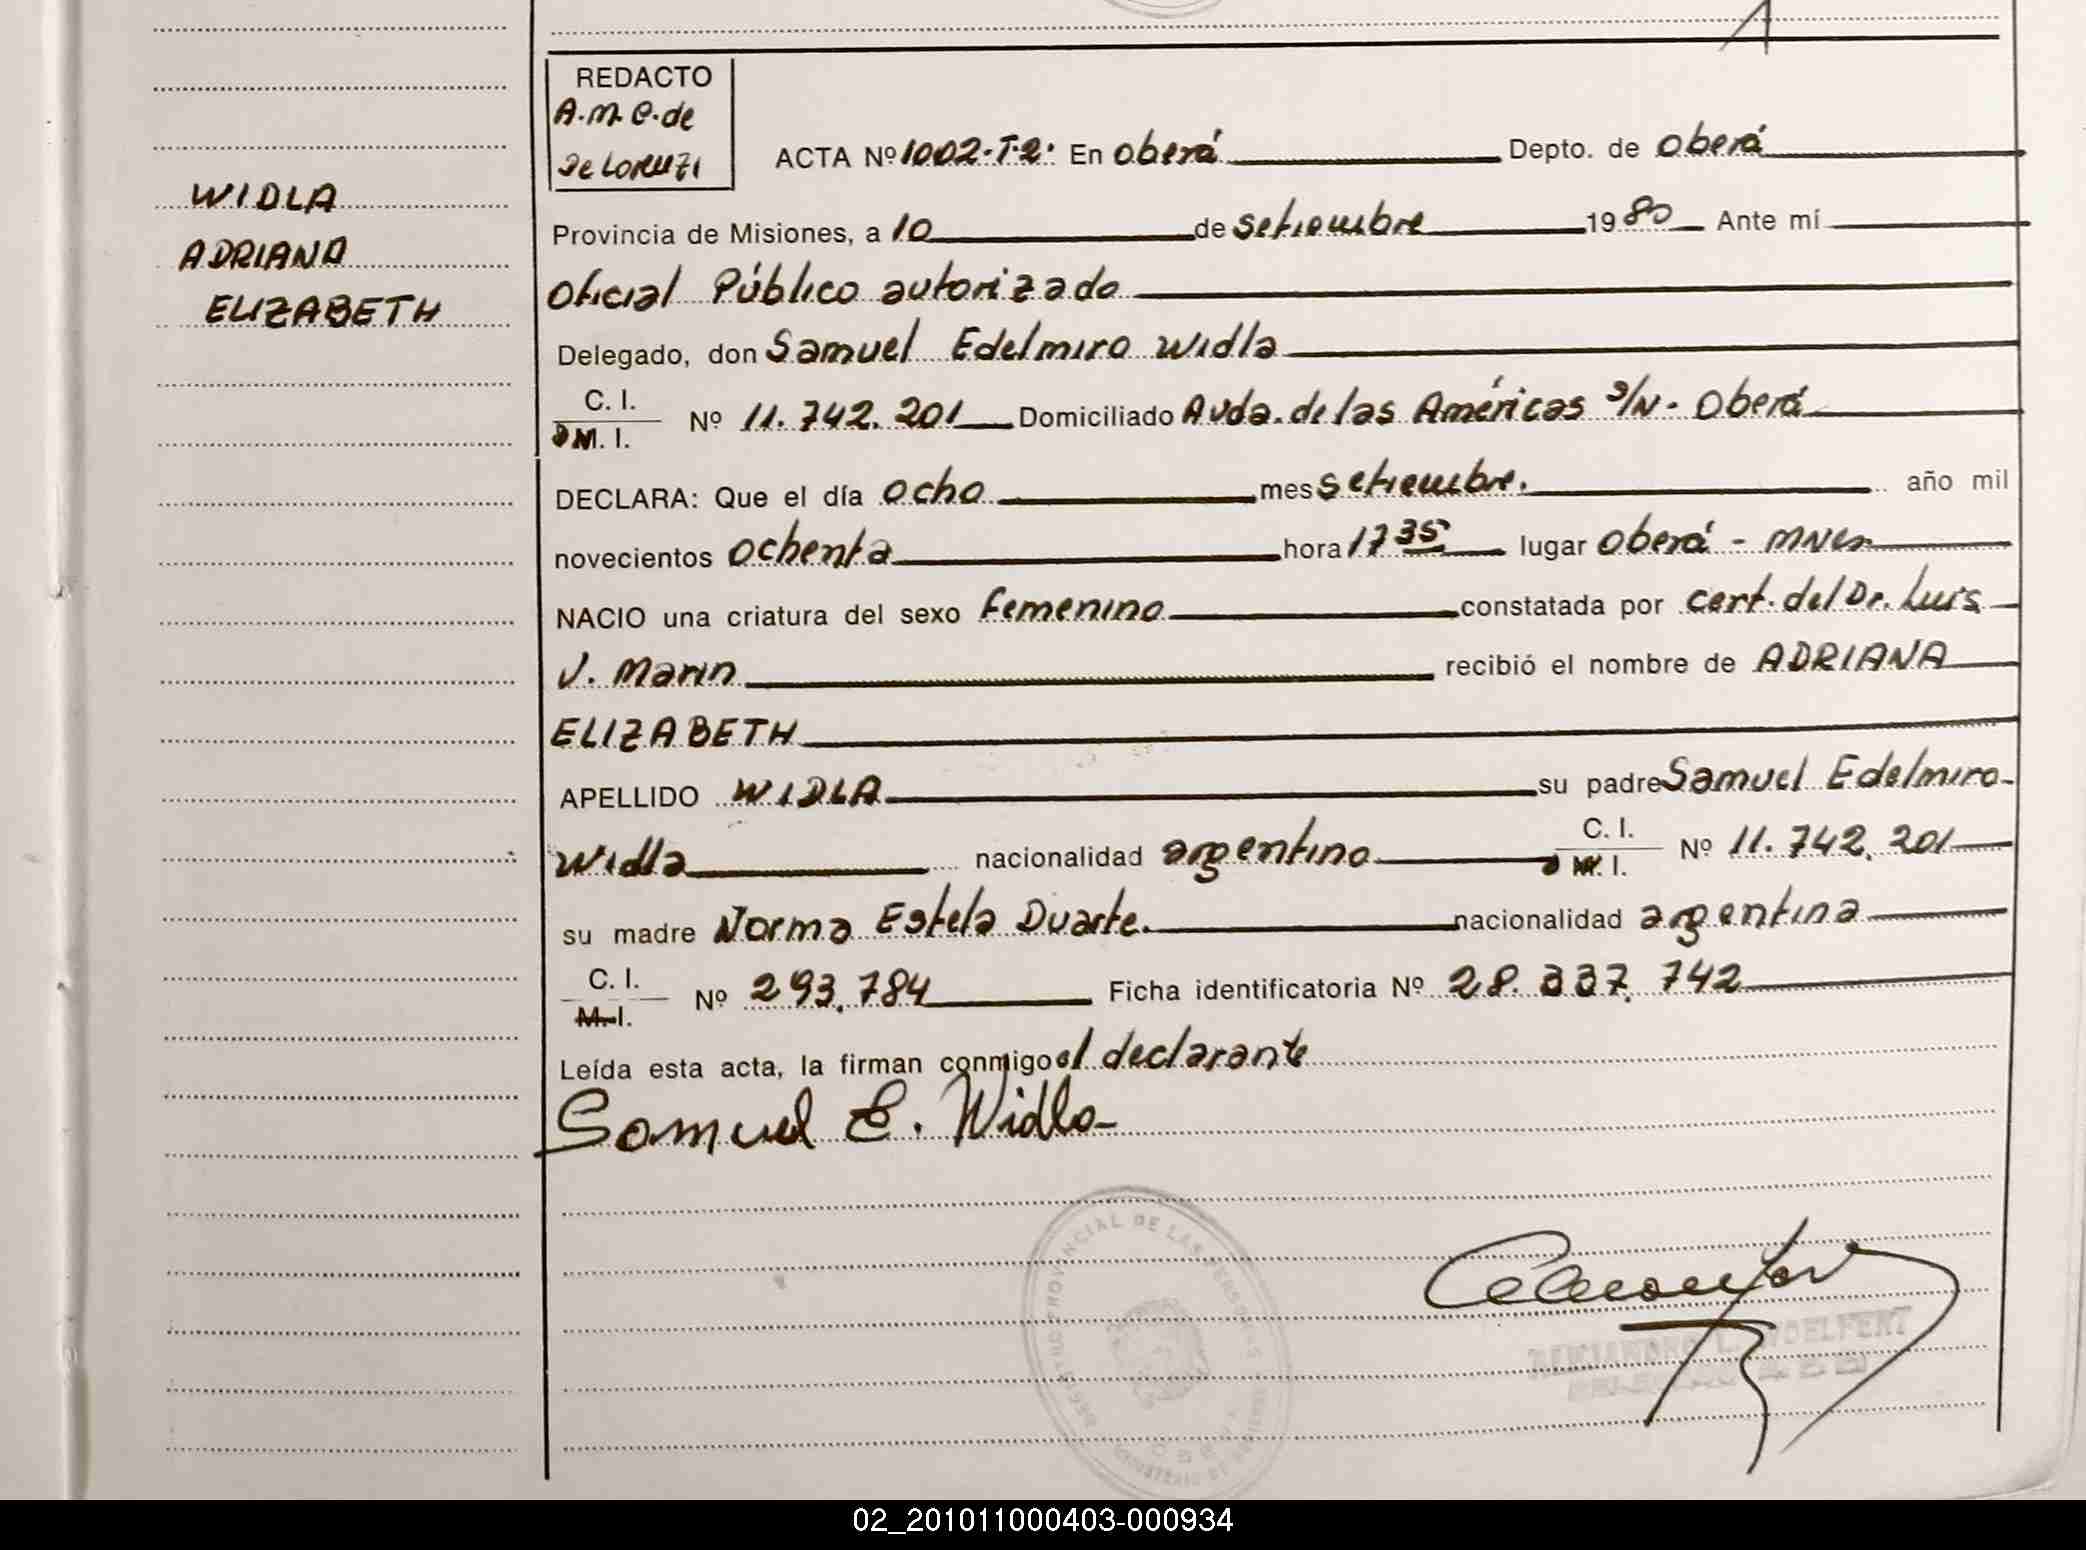 1
REDACTO
A.M.C. de
De LORUZI
ACTA Nº 1002-T-2. En Oberá Depto. de Oberá
WIDLA
ADRIANA
ELIZABETH
Provincia de Misiones, a 10 de setiembre 1980 Ante mí
Oficial Público autorizado
Delegado, don Samuel Edelmiro Widla
C. I.
M. I. Nº 11.742.201 Domiciliado Avda. de las Américas s/N - Oberá
DECLARA: Que el día ocho mes setiembre. año mil
novecientos ochenta hora 17 35 lugar Oberá - Mnes
NACIO una criatura del sexo femenino constatada por cert. del Dr. Luis
J. Marin recibió el nombre de ADRIANA
ELIZABETH
APELLIDO WIDLA su padre Samuel Edelmiro
Widla nacionalidad argentino C. I.
M. I. Nº 11.742.201
su madre Norma Estela Duarte. nacionalidad argentina
C. I.
M. I. Nº 293.784 Ficha identificatoria Nº 28.337.742
Leída esta acta, la firman conmigo el declarante
Samuel E. Widla
REGISTRO PROVINCIAL DE LAS PERSONAS
MINISTERIO DE
02_201011000403-000934